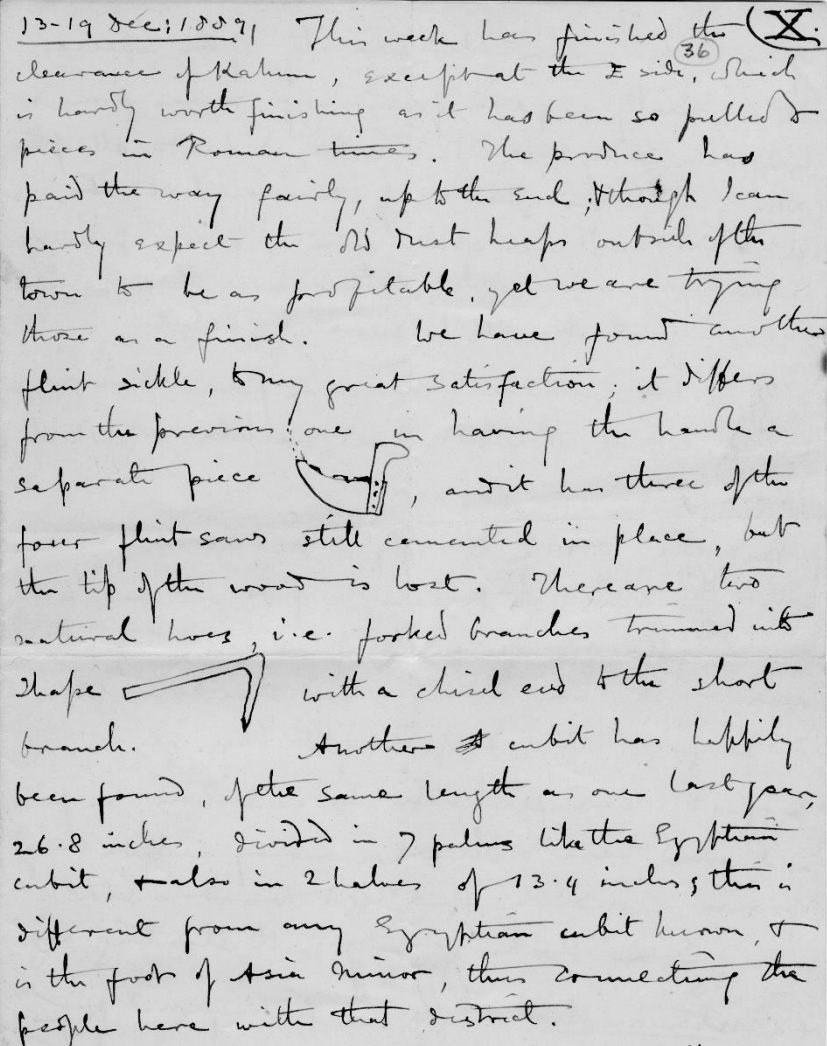 13-19 Dec: 1889, This week has finished the X.
36
clearance of Kahun, except at the E side, which
is hardly worth finishing as it has been so pulled to
pieces in Roman times. The produce has
paid the way fairly, up to the end; & though I can
hardly expect the old dust heaps outside of the
town to be as profitable, yet we are trying
those as a finish. We have found another
flint sickle, to my great satisfaction; it differs
from the previous one in having the handle a
separate piece , and it has three of the
four flint saws still cemented in place, but
the tip of the wood is lost. There are two
natural hoes, i.e. forked branches trimmed into
shape with a chisel end to the short
branch. Another cubit has happily
been found, of the same length as one last year,
26.8 inches, divided in 7 palms like the Egyptian
cubit, & also in 2 halves of 13.4 inches; this is
different from any Egyptian cubit known, &
is the foot of Asia Minor, thus connecting the
people here with that district.